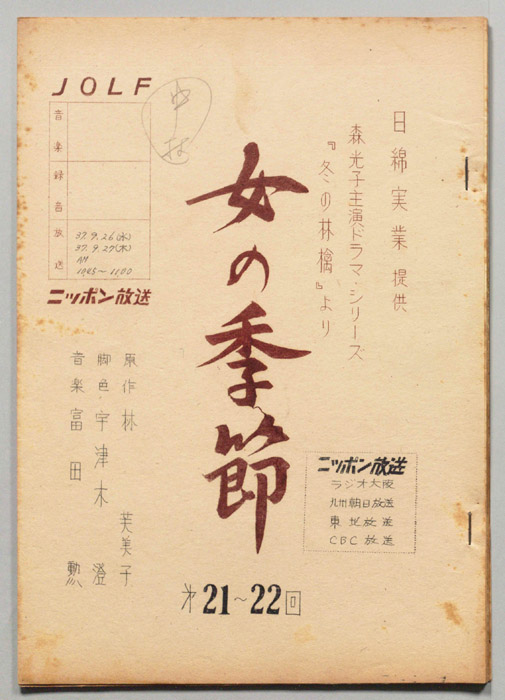 日綿実業提供
森光子主演ドラマ・シリーズ
『冬の林檎』より
女の季節
JOLF
音楽
録音
放送
37.9.26(水)
37.9.27(木)
AM
1045～1100
ニッポン放送
原作 林 芙美子
脚色 宇津木 澄
音楽 富田 勲
ニッポン放送
ラジオ大阪
九州朝日放送
東北放送
CBC放送
才21～22回